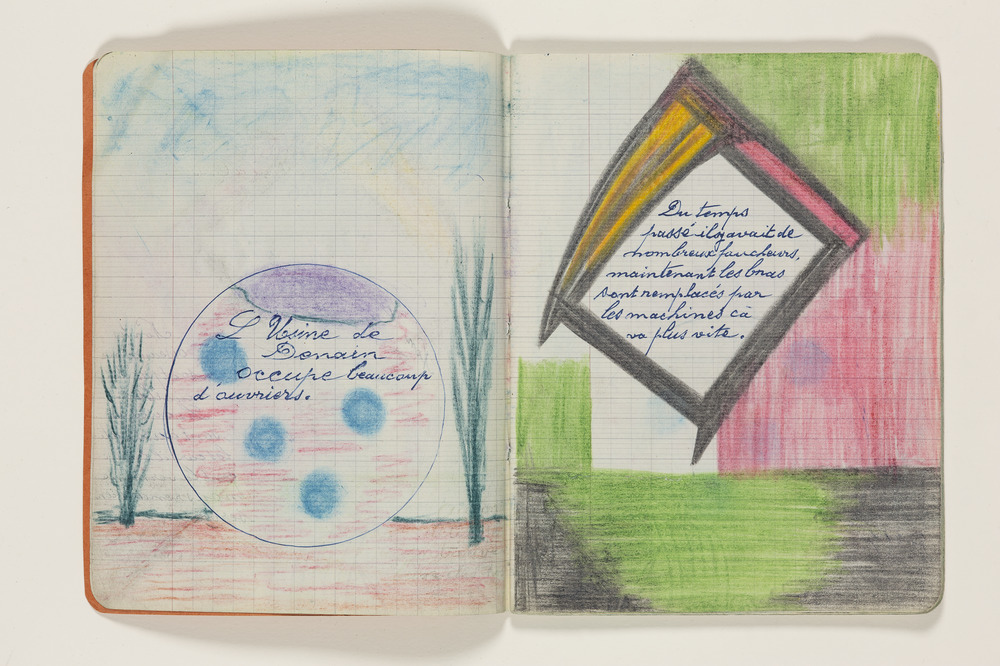 L'Usine de
Denain
occupe beaucoup
d'ouvriers.
Du temps
passé il y avait de
nombreux faucheurs,
maintenant les bras
sont remplacés par
les machines cà
va plus vite.